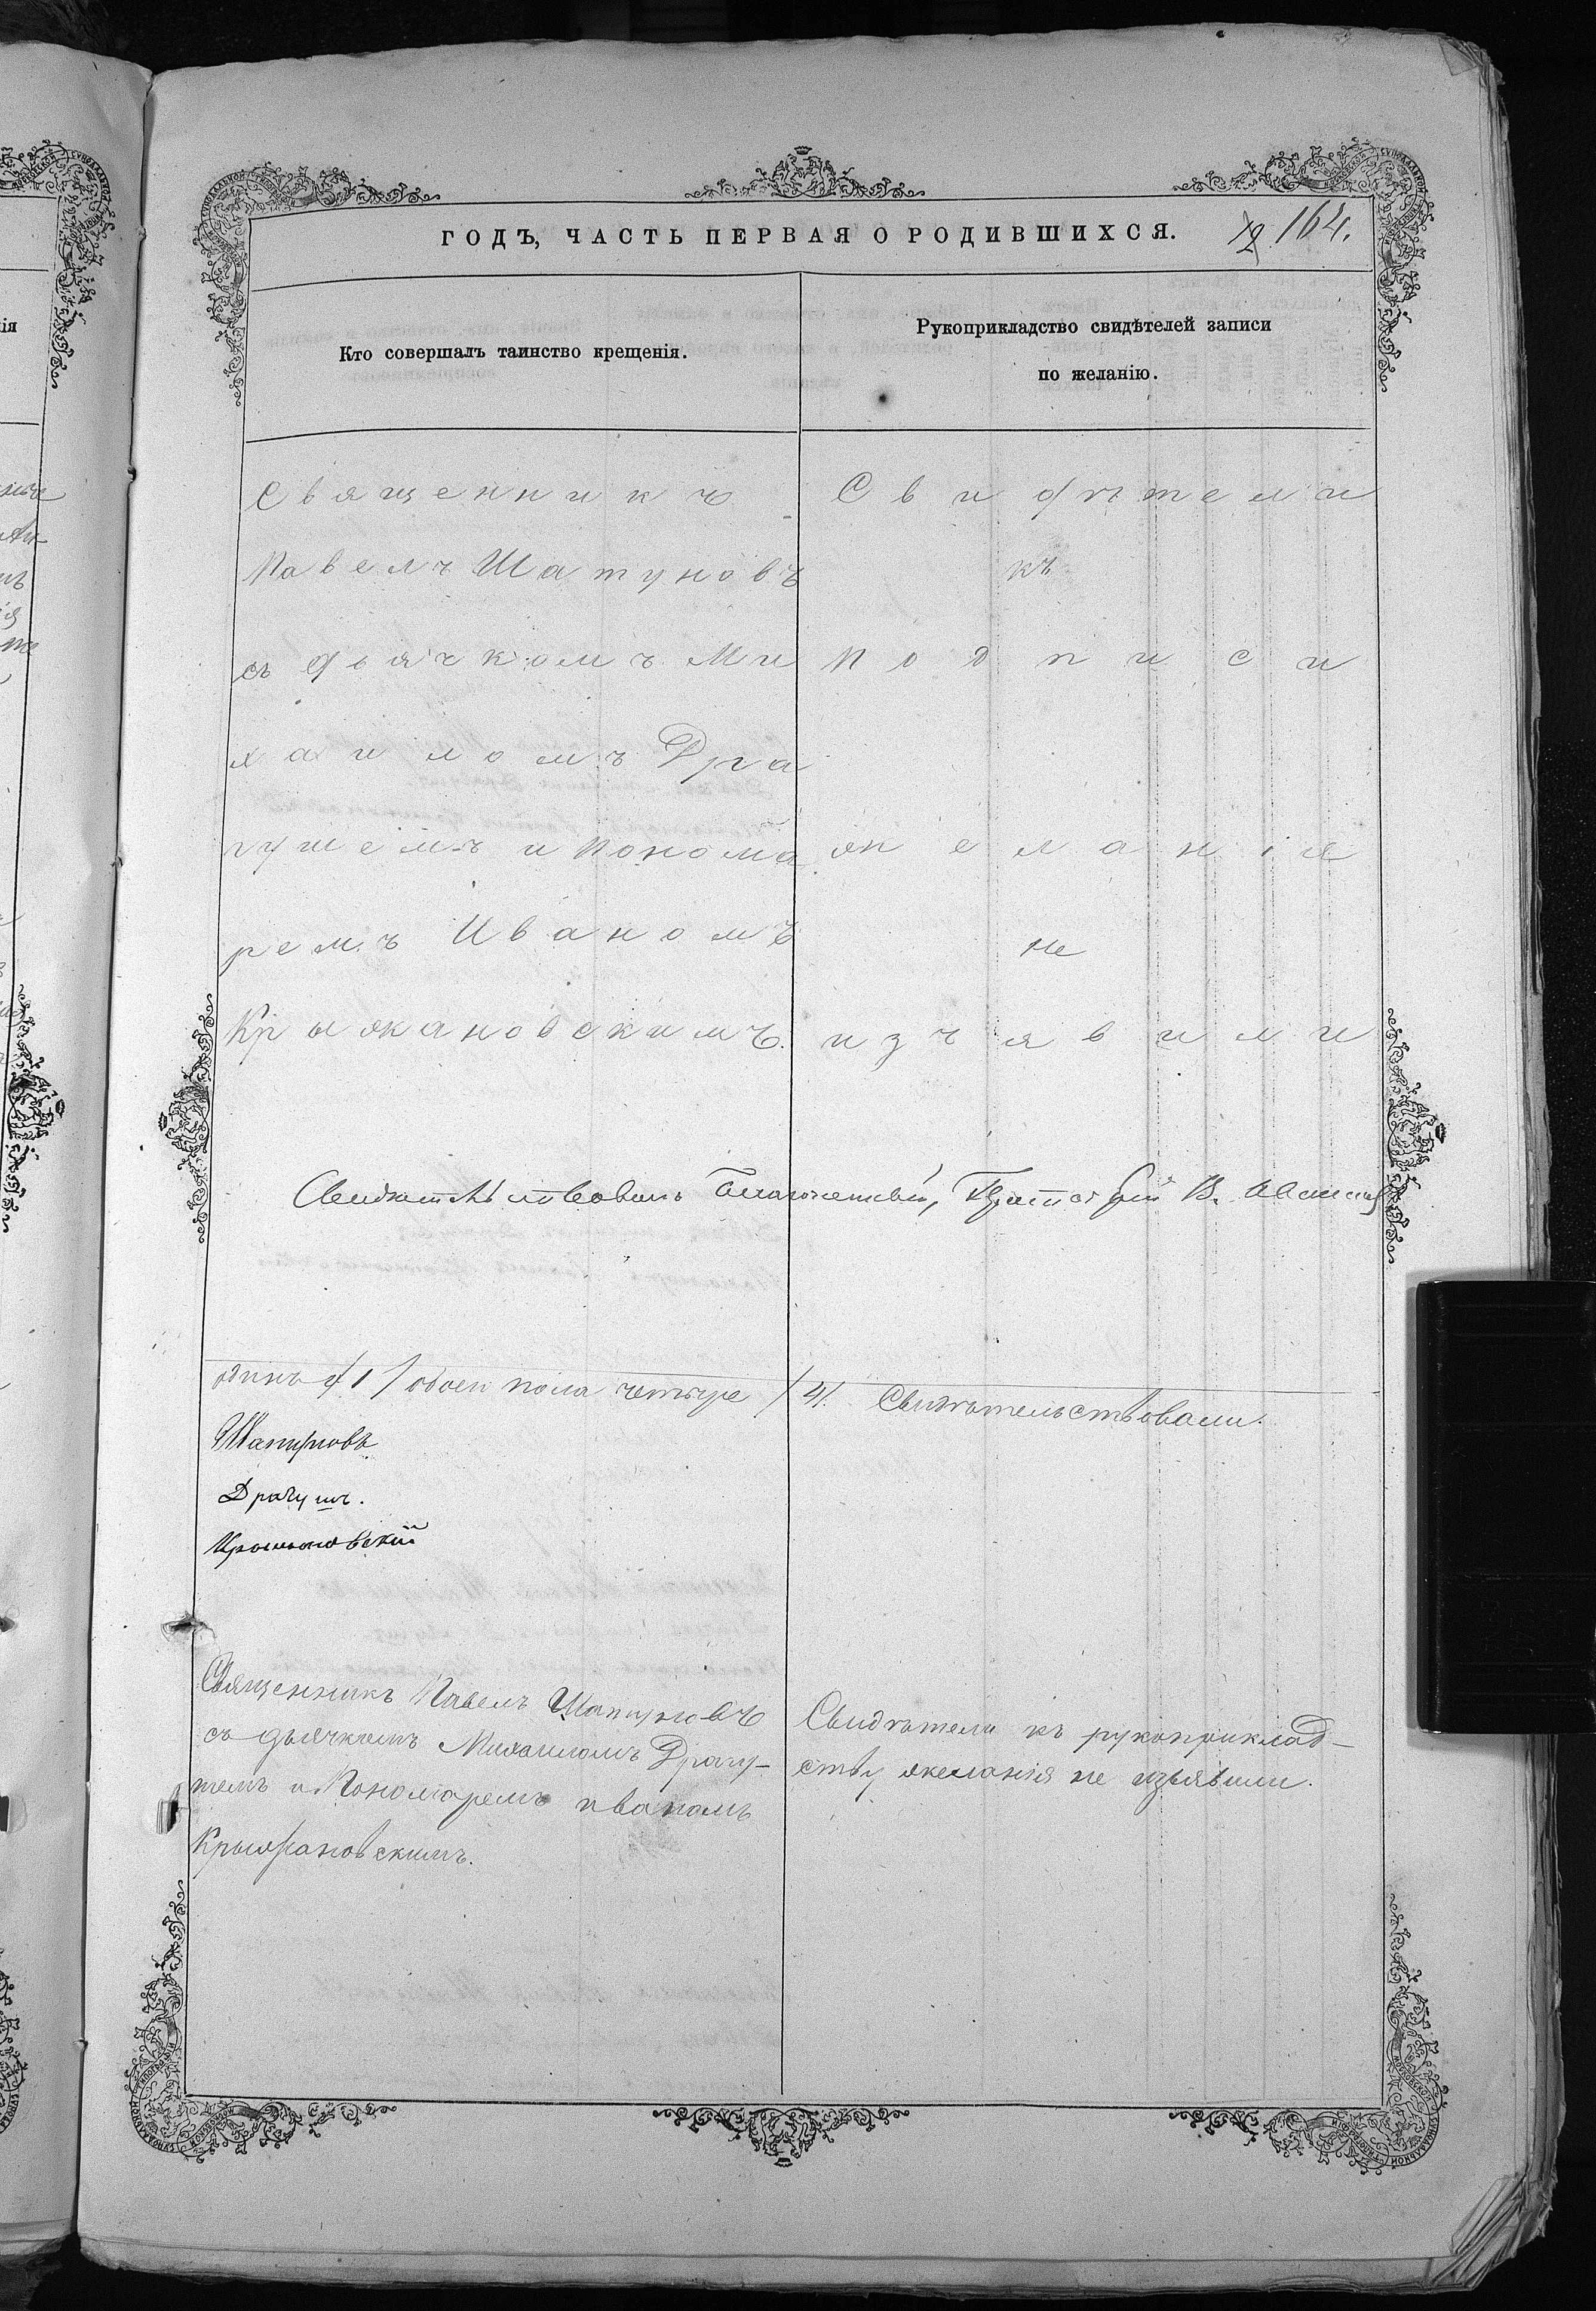 ГОДЪ, ЧАСТЬ ПЕРВАЯ О РОДИВШИХСЯ.
164.
Кто совершалъ таинство крещенія.
Рукоприкладство свидѣтелей записи
по желанію.
Священникъ
Павелъ Шатуновъ
съ дьячкомъ Ми
хаиломъ Дра
гушемъ и понома
ремъ Иваномъ
Крыжановскимъ.
Свидѣтели
къ
подписи
желанія
не
изъявили
Свидѣтельствовалъ Благочинный, Протоіерей В.
одинъ /1/ обоего пола четыре /4/. Свидѣтельствовали.
Шатуновъ
Драгушъ.
Крыжановскій
Священникъ Павелъ Шатуновъ
съ дьячкомъ Михаиломъ Драгу-
шемъ и Пономаремъ Иваномъ
Крыжановскимъ.
Свидѣтели къ рукоприклад-
ству желанія не изъявили.